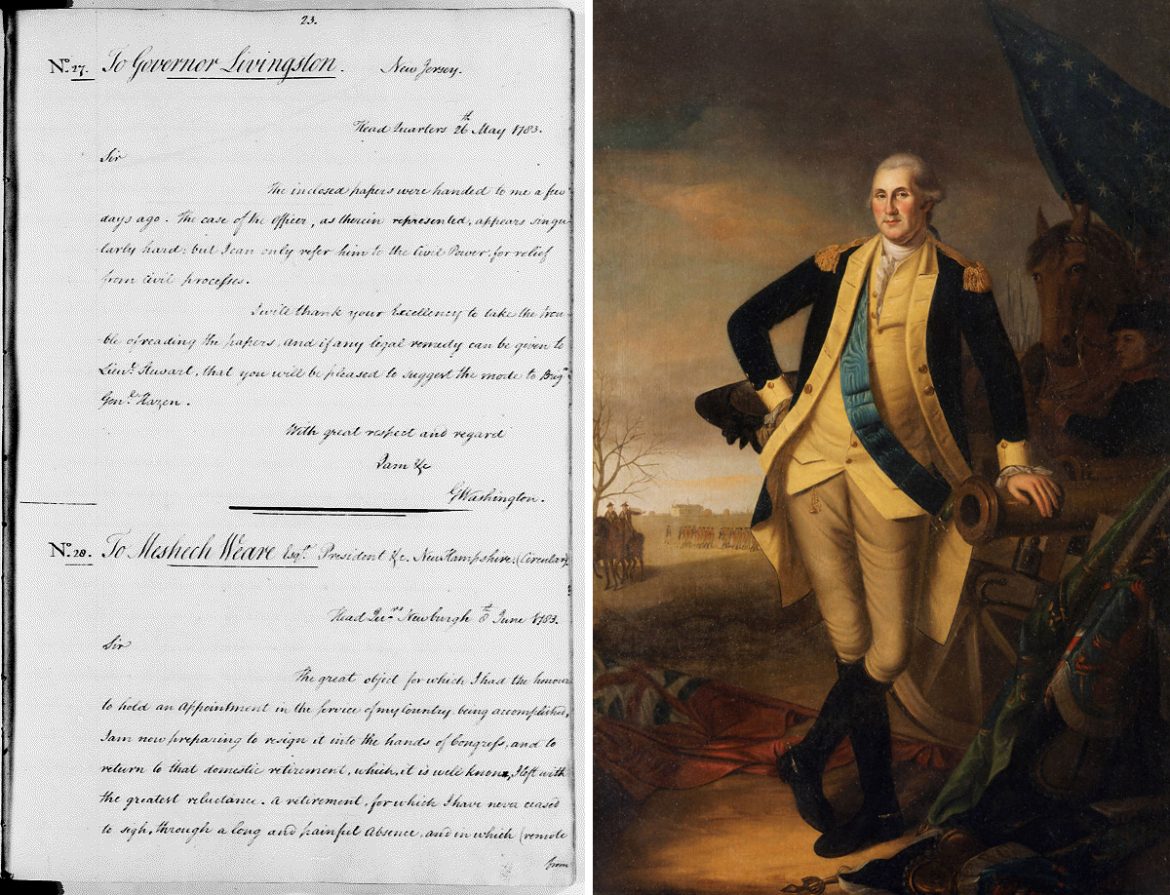 23.
No. 27. To Governor Livingston. New Jersey.
Head Quarters 26th May 1783.
Sir
The inclosed papers were handed to me a few
days ago. The case of the officer, as therein represented, appears singu-
larly hard: but I can only refer him to the Civil Power, for relief
from civil processes.
I will thank your Excellency to take the trou-
ble of reading the papers, and if any legal remedy can be given to
Lieut. Stewart, that you will be pleased to suggest the mode to Brigr
Genl. Hazen.
With great respect and regard
I am &c
GWashington.
No. 28. To Meshech Weare Esqr. President &c. New Hampshire. (Circular)
Head Qurs. Newburgh 8th June 1783.
Sir
The great object for which I had the honour
to hold an Appointment in the service of my Country being accomplished,
I am now preparing to resign it into the hands of Congress, and to
return to that domestic retirement, which, it is well known, I left with
the greatest reluctance. A retirement, for which I have never ceased
to sigh, through a long and painful absence, and in which (remote
from